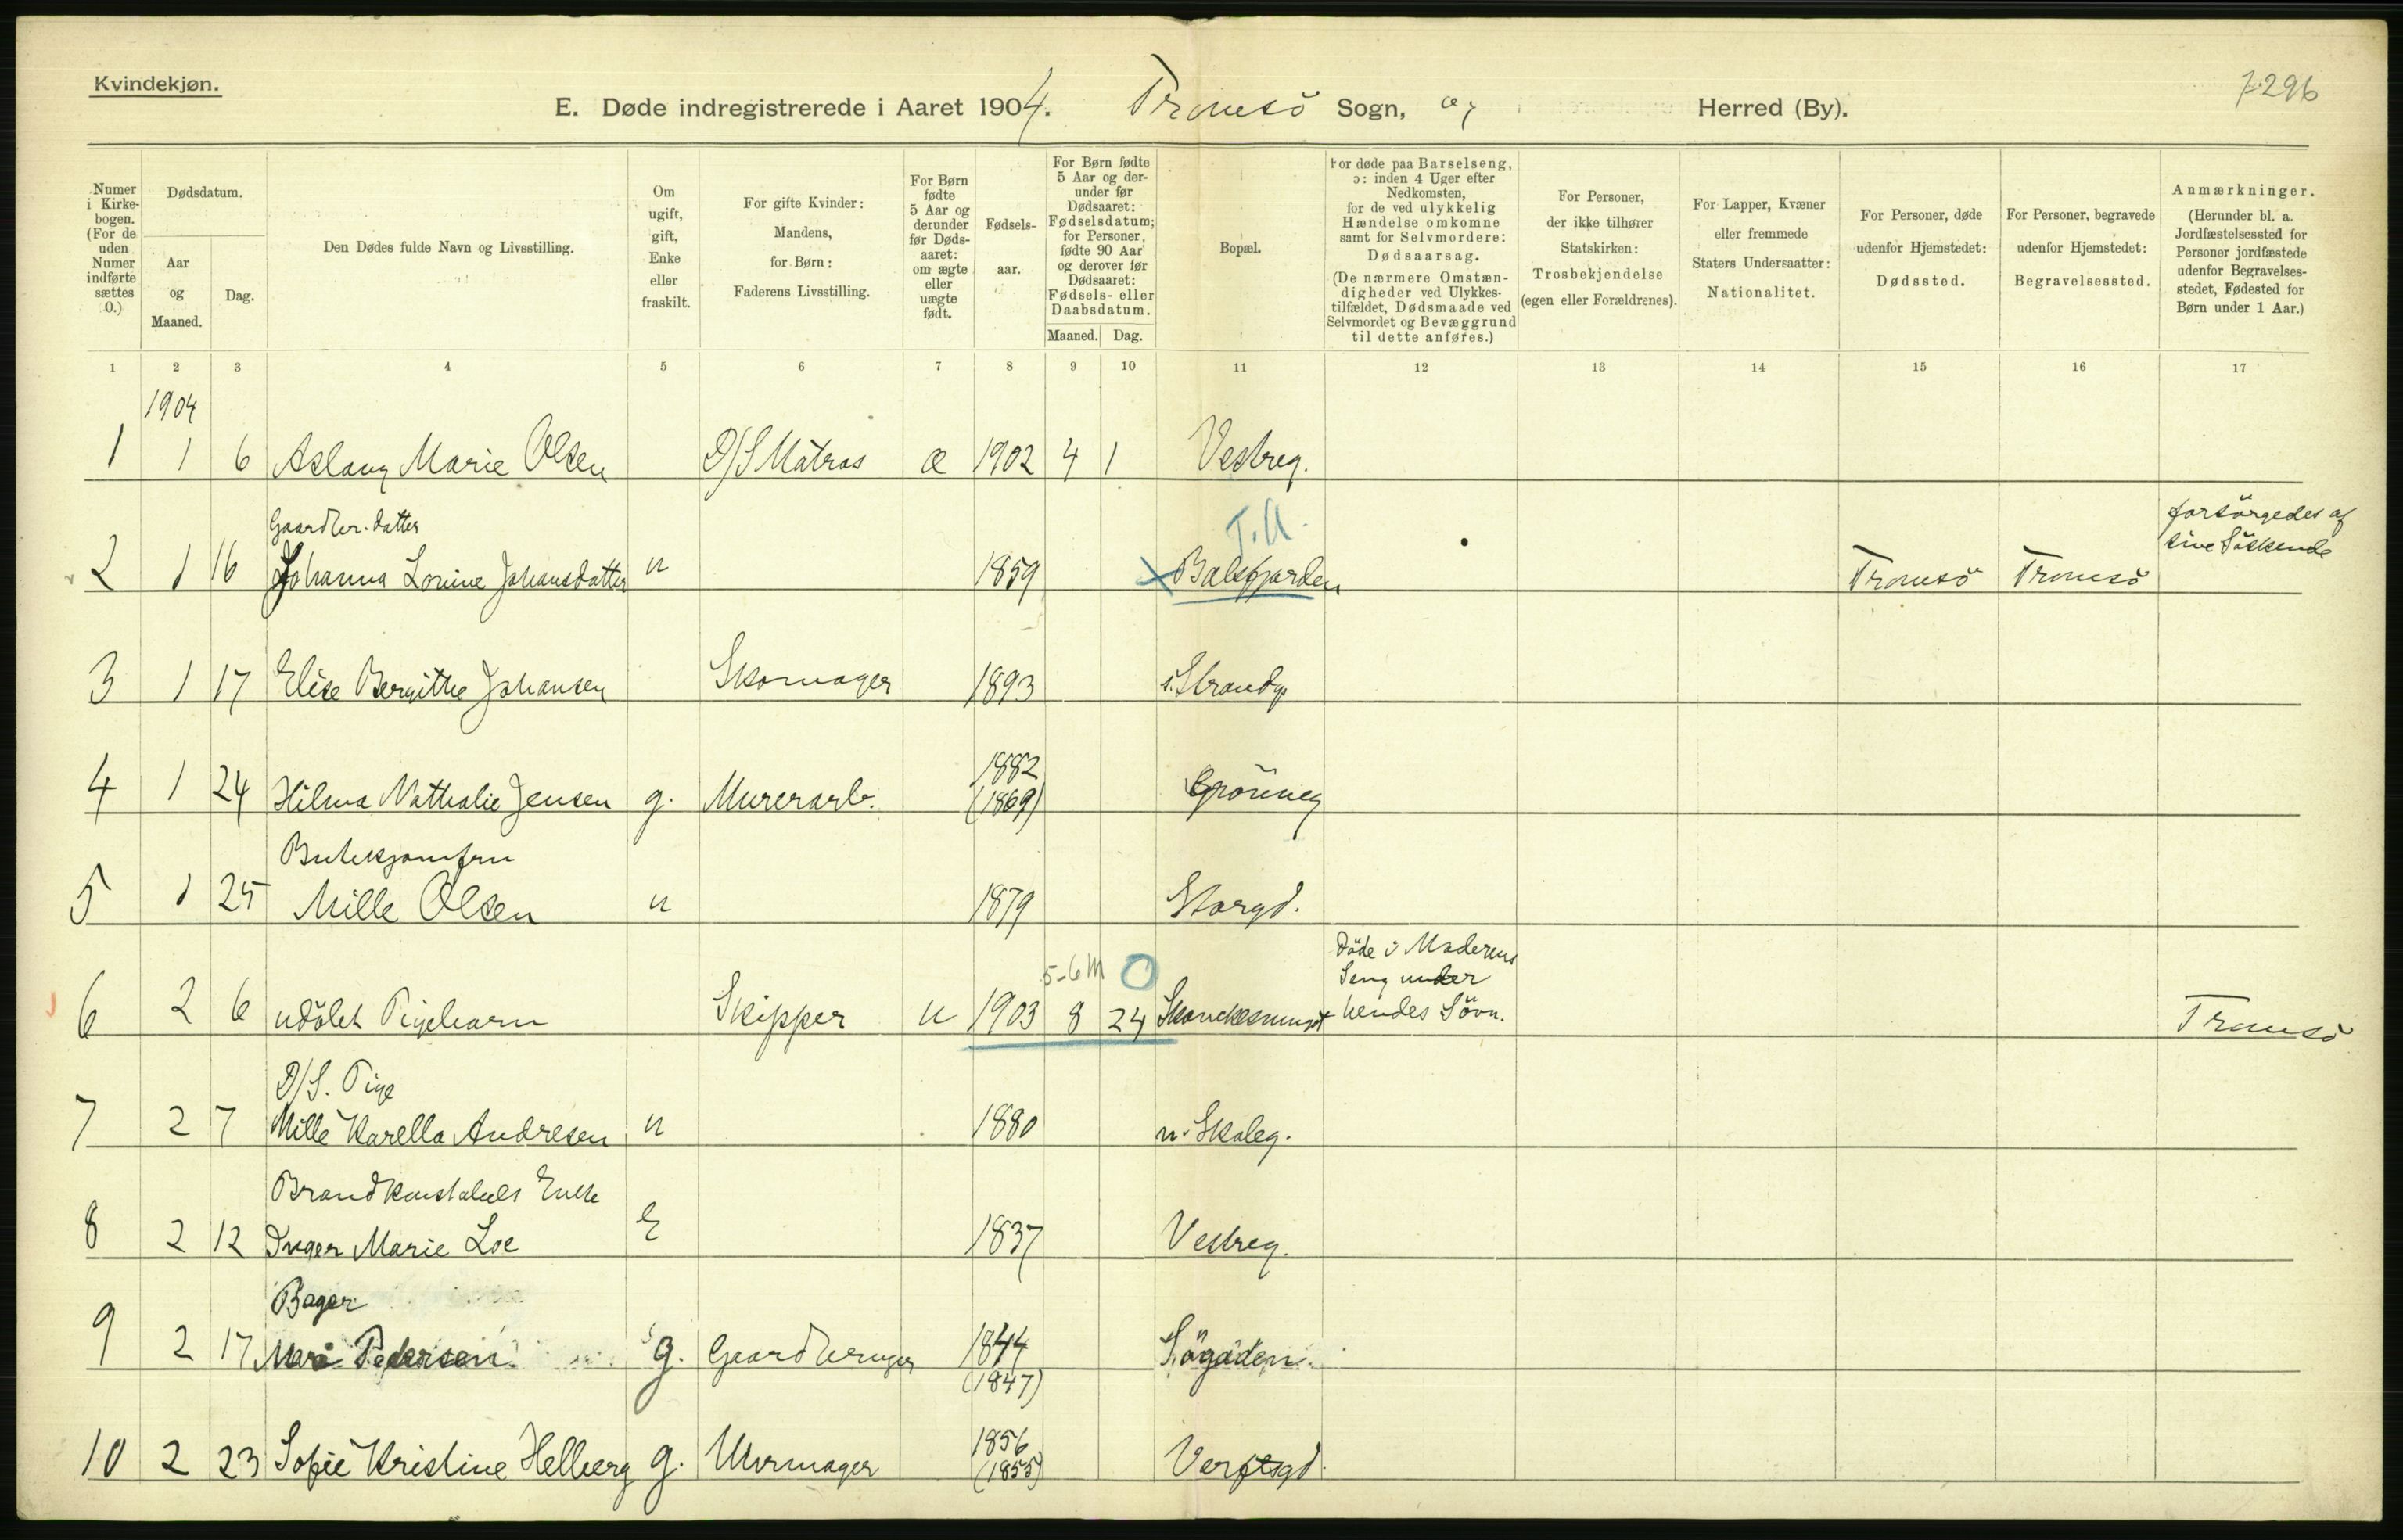 Kvindekjøn.
7296
E. Døde indregistrerede i Aaret 1904. Tromsö Sogn, og Herred (By).
Numer i Kirkebogen. (For de uden Numer indførte sættes 0.)
Dødsdatum.
Aar og Maaned.
Dag.
Den Dødes fulde Navn og Livsstilling.
Om ugift, gift, Enke eller fraskilt.
For gifte Kvinder: Mandens, for Børn: Faderens Livsstilling.
For Børn fødte 5 Aar og derunder før Dødsaaret: om ægte eller uægte født.
Fødselsaar.
For Børn fødte 5 Aar og derunder før Dødsaaret: Fødselsdatum; for Personer, fødte 90 Aar og derover før Dødsaaret: Fødsels- eller Daabsdatum.
Maaned. Dag.
Bopæl.
For døde paa Barselseng, ɔ: inden 4 Uger efter Nedkomsten, for de ved ulykkelig Hændelse omkomne samt for Selvmordere: Dødsaarsag. (De nærmere Omstændigheder ved Ulykkestilfældet, Dødsmaade ved Selvmordet og Bevæggrund til dette anføres.)
For Personer, der ikke tilhører Statskirken: Trosbekjendelse (egen eller Forældrenes).
For Lapper, Kvæner eller fremmede Staters Undersaatter: Nationalitet.
For Personer, døde udenfor Hjemstedet: Dødssted.
For Personer, begravede udenfor Hjemstedet: Begravelsessted.
Anmærkninger. (Herunder bl. a. Jordfæstelsessted for Personer jordfæstede udenfor Begravelsesstedet, Fødested for Børn under 1 Aar.)
1 2 3 4 5 6 7 8 9 10 11 12 13 14 15 16 17
1904
1 1 6 Aslaug Marie Olsen D/S Matros æ 1902 4 1 Vestreg.
Gaardbr. datter T.A. forsörgedes af
sine Söskende
2 1 16 Johanna Lorine Johansdatter u 1859 Balsfjorden Tromsö Tromsö
3 1 17 Elise Bergithe Johansen Skomager 1893 s. Strandg
1882
4 1 24 Hilma Nathalie Jensen g. Murerarb. (1869) Grönneg
Butikjomfru
5 1 25 Mille Olsen u 1879 Storgd.
Döde i Moderens
5-6 M Seng under
6 2 6 udöbt Pigebarn Skipper u 1903 8 24 hendes Sövn. Tromsö
D/S. Pige
7 2 7 Mille Karella Andresen u 1880 n. Skoleg.
Brandkonstabels Enke
8 2 12 Inger Marie Loe E 1837 Vestreg.
Bager
9 2 17 Pedersen g. Gaardbruger 1844 Sögaden
(1847)
1856
10 2 23 Sofie Kristine Helberg g. Uhrmager (1855) Verftsgd.